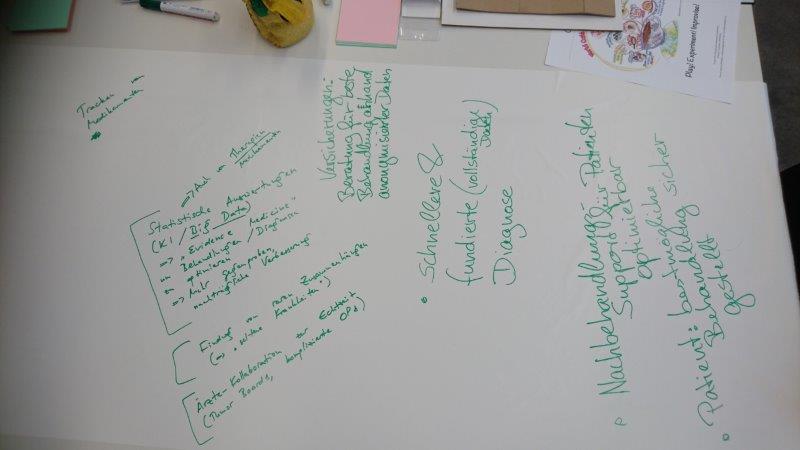 Tracken von
Medikamenten
=> Auch von Therapien
Medikamente
Statistische Auswertungen
(KI / Big Data)
=> "Evidence Medicine"
um Behandlungen / Diagnosen
zu optimieren
=> Mehr Gegenproben,
nachträgliche Verbesserung
Eindruf von raren Zusammenhängen
(=> "seltene Krankheiten")
Ärzte-Kollaboration zur Echtzeit
(Tumor Boards, komplizierte OPs)
Versicherungen:
Beratung für beste
Behandlung anhand
anonymisierter Daten
Schnellere &
fundierte (vollständige
Daten)
Diagnose
Nachbehandlungs-
Support für Patienten
optimierbar
Patient: bestmögliche
Behandlung sicher
gestellt
Play! Experiment! Improvise!